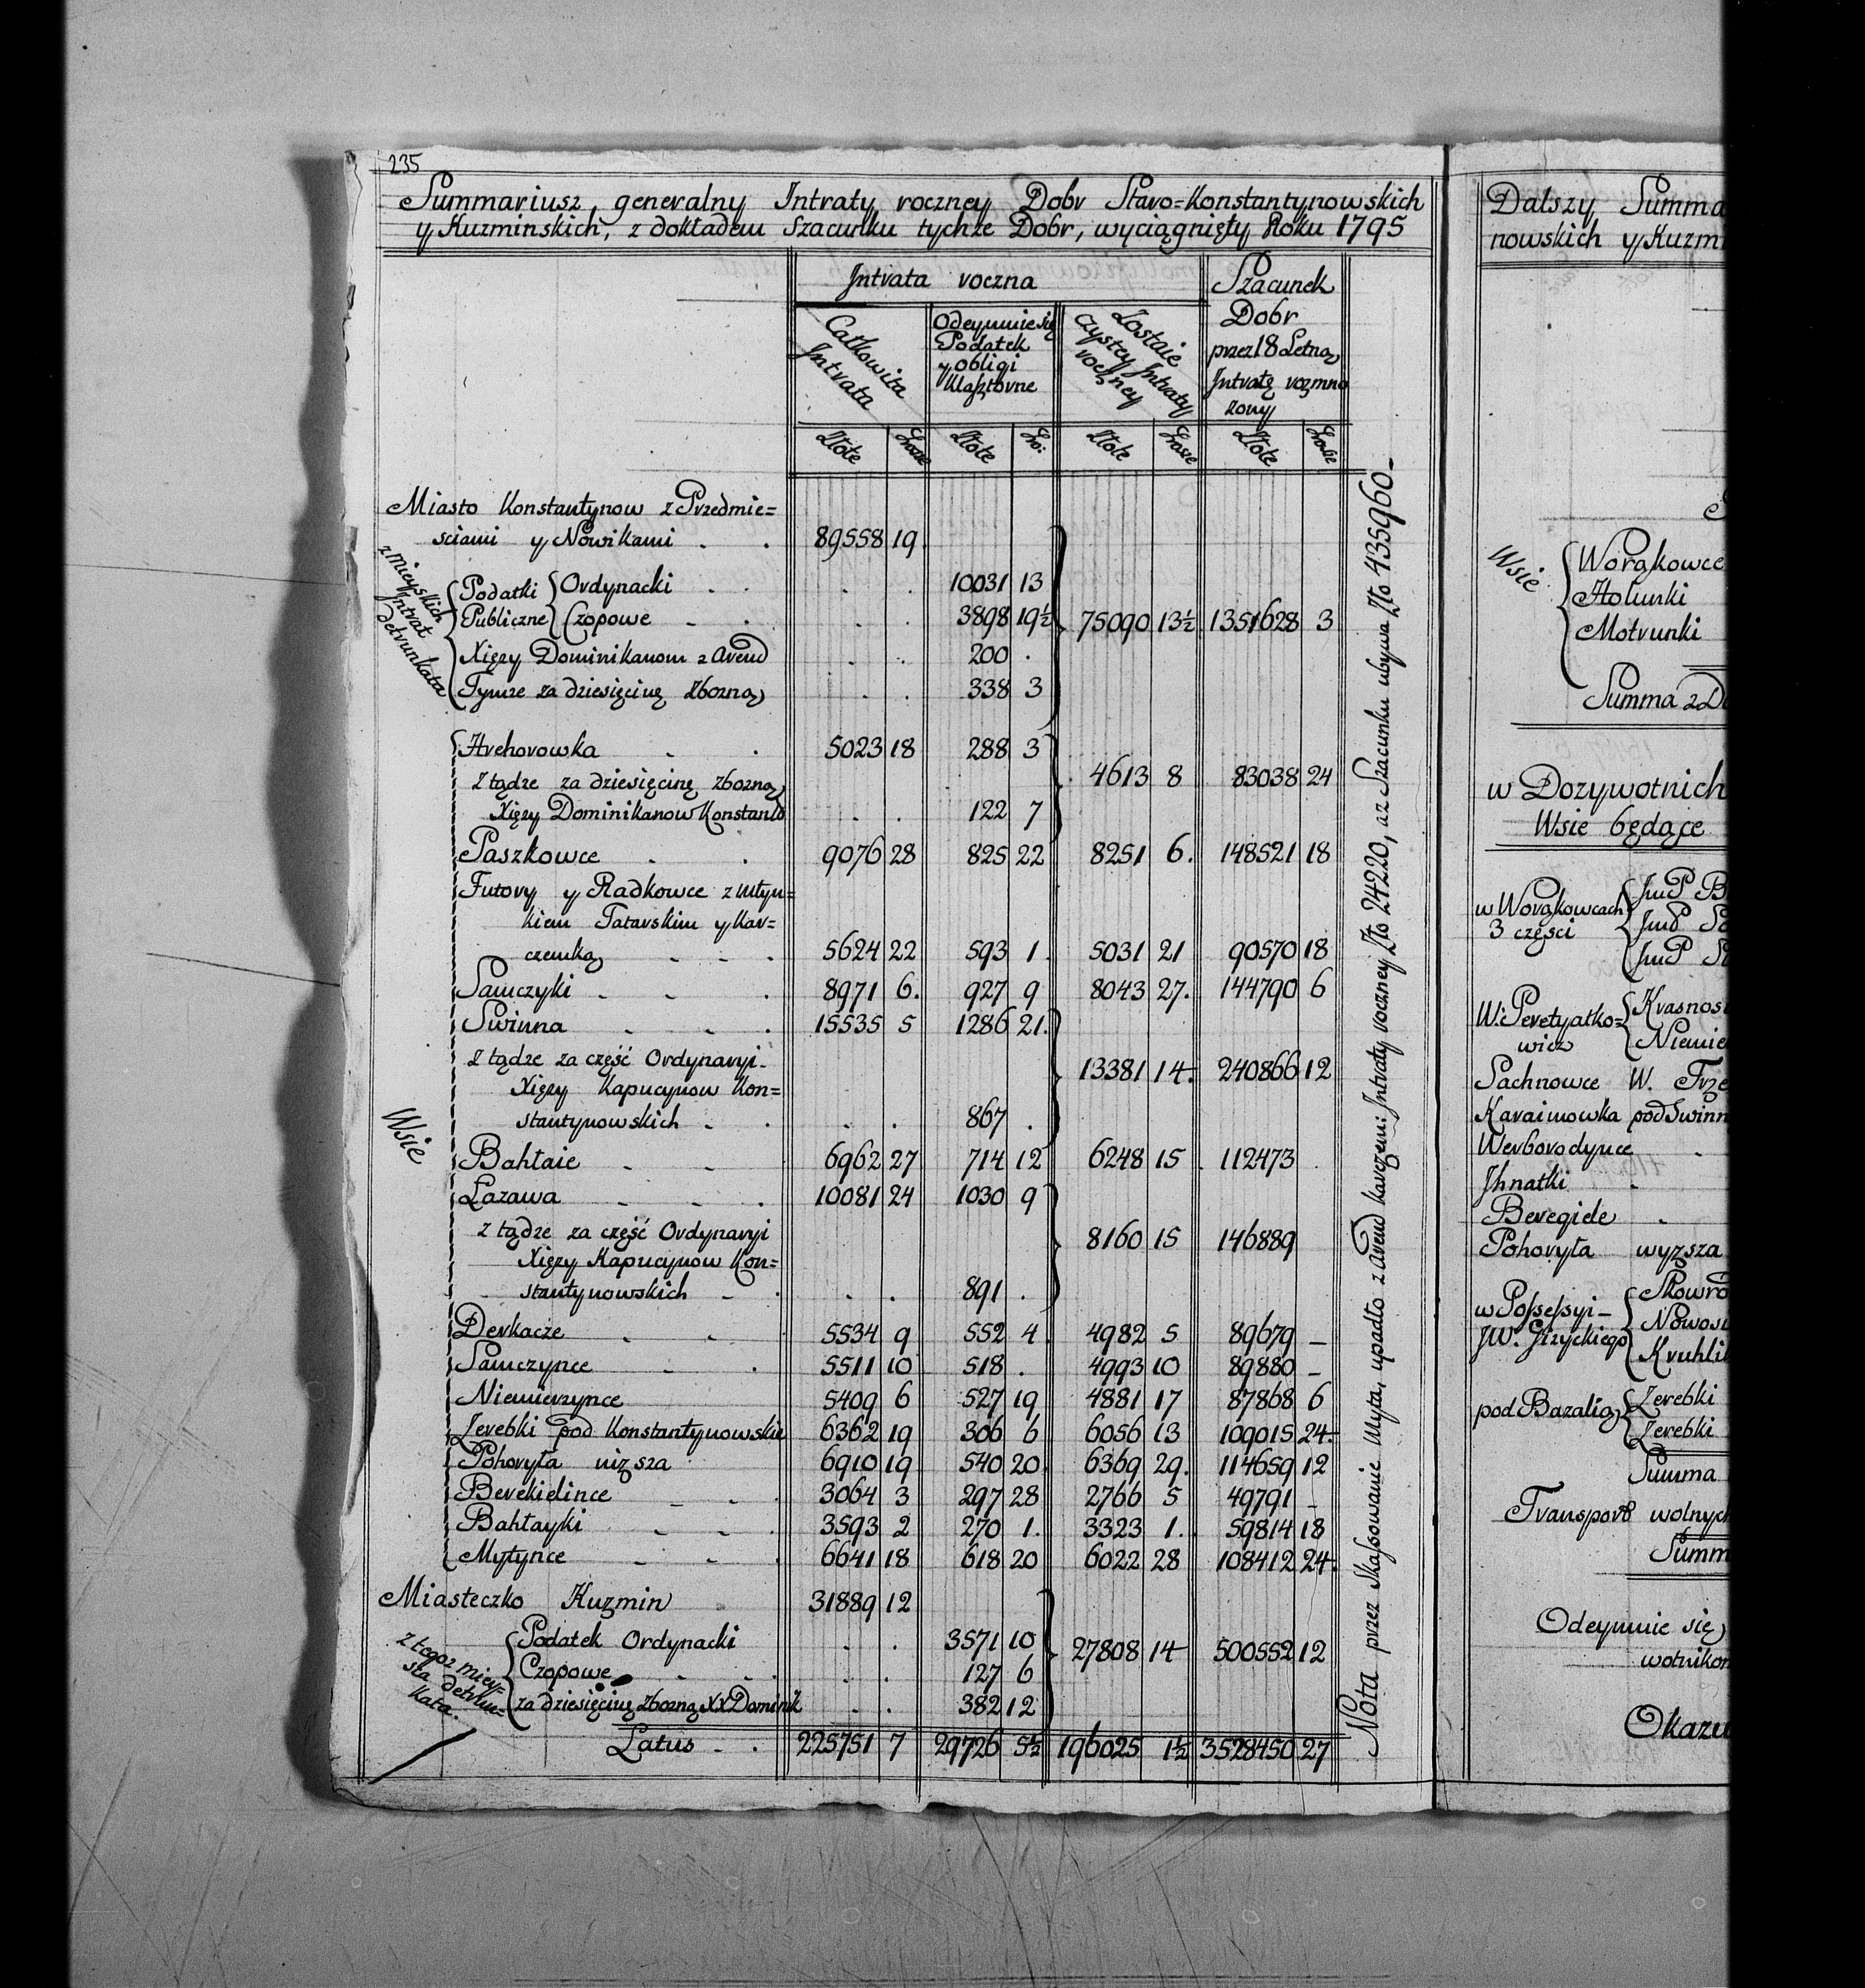 235
Summariusz generalny Intraty roczney Dobr Staro=Konstantynowskich
y Kuzminskich, z dokładem Szacunku tychże Dobr, wyciągnięty Roku 1795
Intrata roczna
Szacunek
Dobr
przez 18 Letną
Intratę rozmno
żony
Całkowita
Intrata
Odeymuie się
Podatek
y obligi
Klasztorne
Zostaie
czystey Intraty
roczney
Złote Grosze Złote Gro: Złote Grosze Złote Grosze
Miasto Konstantynow z Przedmie=
sciami y Nowikami . . 89558 19
z Mieyskich
Intrat
detrunkata
Podatki Publiczne
Ordynacki . . 10031 13
Czopowe - . 3898 19½ 75090 13½ 1351628 3
Xięży Dominikanom z Arend . . 200 .
Tymże za dziesięcinę zbożną . . 338 3
Wsie
Hrehorowka . . 5023 18 288 3
z tądże za dziesięcinę zbożną 4613 8 83038 24
Xięży Dominikanow Konstant . . 122 7
Paszkowce . . 9076 28 825 22 8251 6. 148521 18
Futory y Radkowce z Młyn=
kiem Tatarskim y Kar=
czemką - - . 5624 22 593 1 5031 21 90570 18
Samczyki - - . 8971 6. 927 9 8043 27. 144790 6
Swinna - - . 15535 5 1286 21.
z tądże za część Ordynaryi- 13381 14. 240866 12
Xięży Kapucynow Kon=
stantynowskich - . . . 867 .
Bahłaie - - 6962 27 714 12 6248 15 112473 .
Łazawa - - . 10081 24 1030 9
z tądże za część Ordynaryi 8160 15 146889
Xięży Kapucynow Kon=
stantynowskich - . . . 891 .
Derkacze . - 5534 9 552 4 4982 5 89679 -
Samczynce - . 5511 10 518 . 4993 10 89880 -
Niemierzynce 5409 6 527 19 4881 17 87868 6
Zerebki pod Konstantynowskie 6362 19 306 6 6056 13 109015 24.
Pohoryła niższa 6910 19 540 20 6369 29. 114659 12
Berekielince - - . 3064 3 297 28 2766 5 49791 -
Bahłayki - - . 3593 2 270 1. 3323 1. 59814 18
Mytynce - - . 6641 18 618 20 6022 28 108412 24.
Miasteczko Kuzmin 31889 12
z tegoż miey=
sta detrun=
kata.
Podatek Ordynacki . . 3571 10 27808 14 500552 12
Czopowe - - . . . 127 6
za dziesięcinę zbożną XX Dominik . . 382 12
Latus - . 225751 7 29726 5½ 196025 1½ 3528450 27
Nota przez Skassowanie Myta, upadło z Arend karczem: Intraty roczney Zło 24220, az Szacunku ubywa Zło 435960-
Dalszy Summa
nowskich y Kuzmi
Wsie
Worąkowce
Hołunki
Motrunki
Summa z D
w Dozywotnich
Wsie będące
w Worąkowcach
3 części
JmP B
JmP S
JmP S
W: Peretyatko=
wicz
Krasnos
Niemie
Sachnowce W. Trze
Karaimowka pod Swinn
Werborodynce -
Jhnatki -
Beregide .
Pohoryła wyższa
w Possessyi-
JW. Giżyckiego
Skowro
Nowosi
Kruhli
pod Bazalią
Zerebki
Zerebki
Summa
Transport wolnych
Summ
Odeymuie się
wotnikom
Okazu